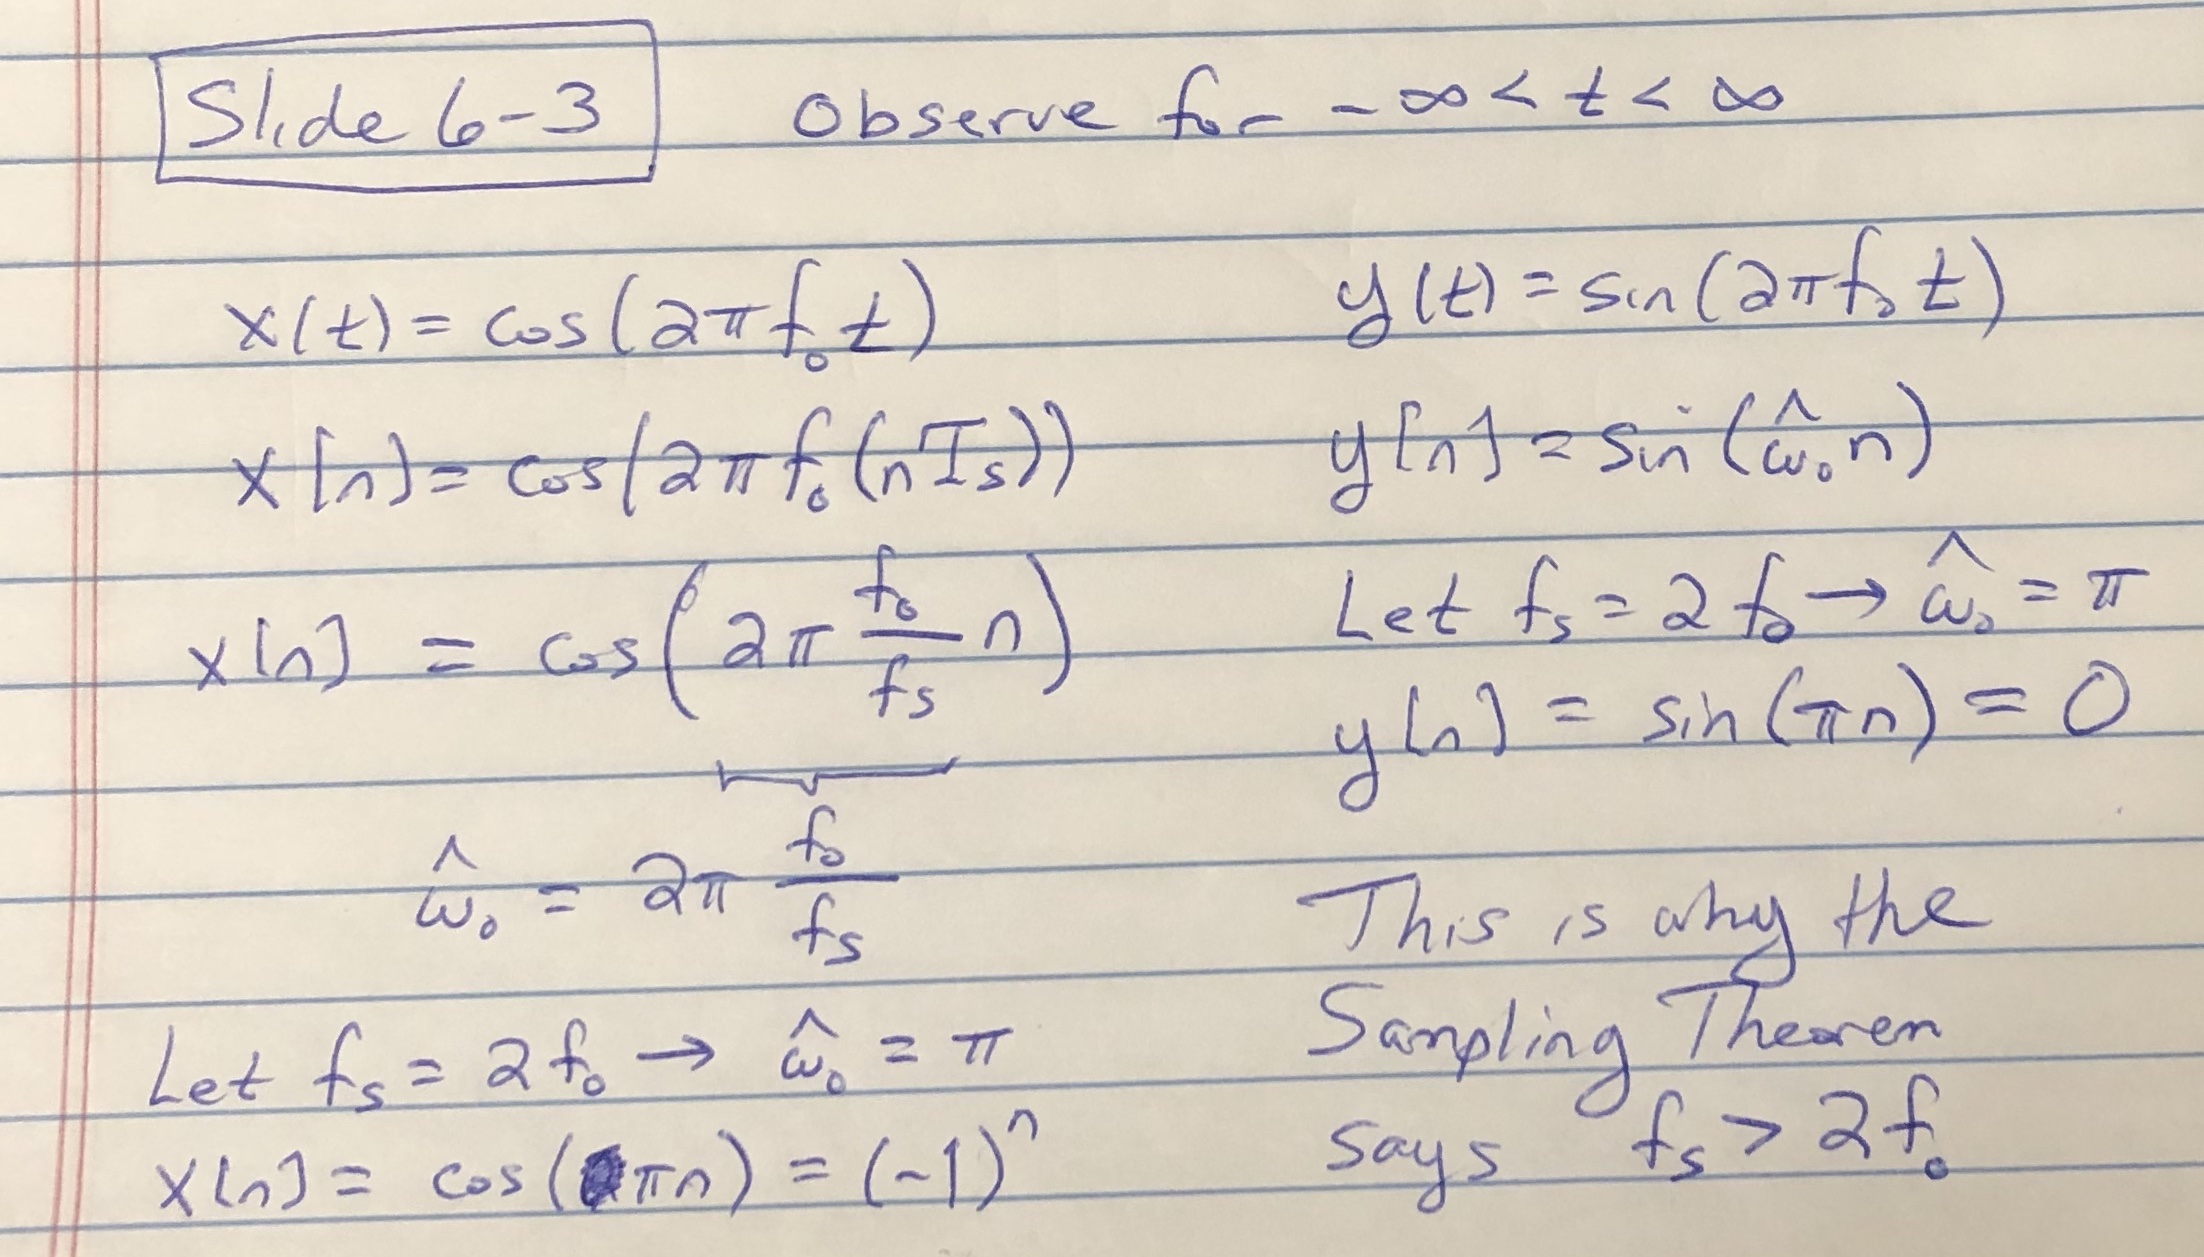 Slide 6-3 Observe for -∞ < t < ∞
x(t) = cos(2πf₀t)
x[n] = cos(2πf₀(nTs))
x[n] = cos(2π f₀/fs n)
ω̂₀ = 2π f₀/fs
Let fs = 2f₀ → ω̂₀ = π
x[n] = cos(πn) = (-1)ⁿ
y(t) = sin(2πf₀t)
y[n] = sin(ω̂₀n)
Let fs = 2f₀ → ω̂₀ = π
y[n] = sin(πn) = 0
This is why the
Sampling Theorem
says fs > 2f₀